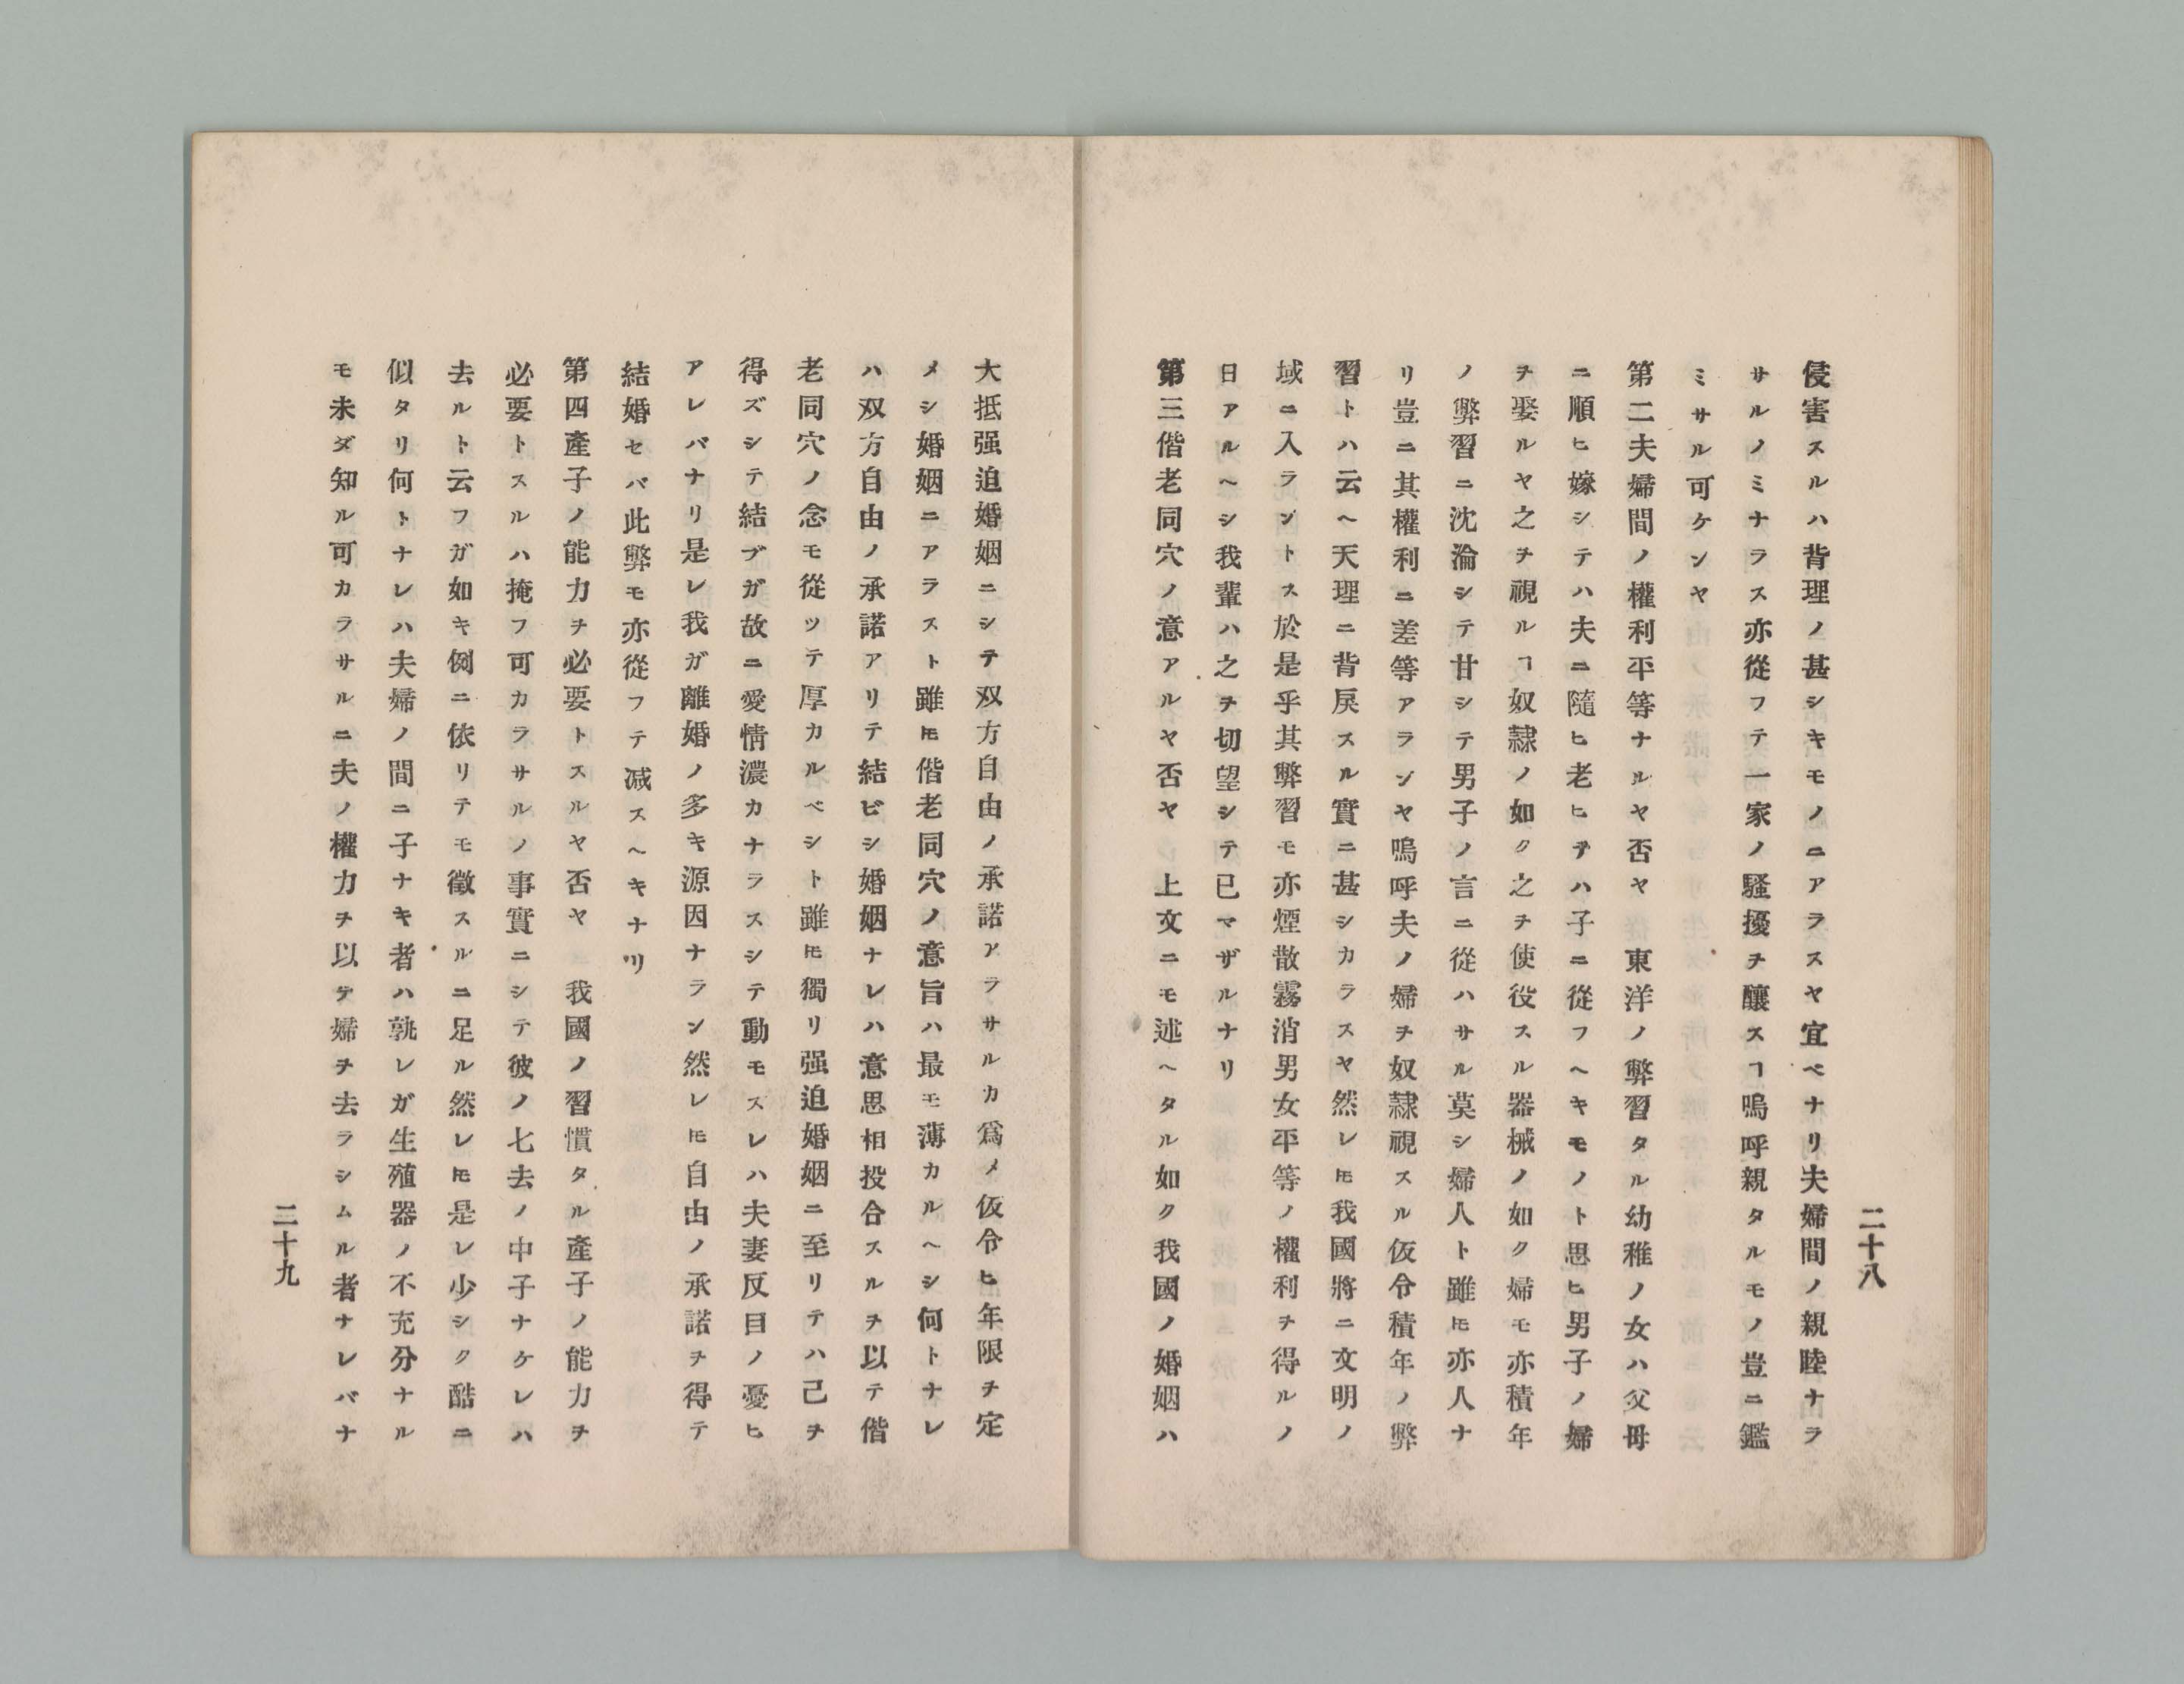 二十八
侵害スルハ背理ノ甚シキモノニアラスヤ宜ベナリ夫婦間ノ親睦ナラ
サルノミナラス亦從フテ一家ノ騷擾ヲ釀スヿ嗚呼親タルモノ豈ニ鑑
ミサル可ケンヤ
第二夫婦間ノ權利平等ナルヤ否ヤ 東洋ノ弊習タル幼稚ノ女ハ父母
ニ順ヒ嫁シテハ夫ニ隨ヒ老ヒテハ子ニ從フヘキモノト思ヒ男子ノ婦
ヲ娶ルヤ之ヲ視ルヿ奴隷ノ如ク之ヲ使役スル器械ノ如ク婦モ亦積年
ノ弊習ニ沈淪シテ甘シテ男子ノ言ニ從ハサル莫シ婦人ト雖𪜈亦人ナ
リ豈ニ其權利ニ差等アランヤ嗚呼夫ノ婦ヲ奴隷視スル仮令積年ノ弊
習トハ云ヘ天理ニ背戻スル實ニ甚シカラスヤ然レ𪜈我國將ニ文明ノ
域ニ入ラントス於是乎其弊習モ亦煙散霧消男女平等ノ權利ヲ得ルノ
日アルヘシ我輩ハ之ヲ切望シテ已マザルナリ
第三偕老同穴ノ意アルヤ否ヤ 上文ニモ述ヘタル如ク我國ノ婚姻ハ
大抵强迫婚姻ニシテ双方自由ノ承諾アラサルカ爲メ仮令ヒ年限ヲ定
メシ婚姻ニアラスト雖𪜈偕老同穴ノ意旨ハ最モ薄カルヘシ何トナレ
ハ双方自由ノ承諾アリテ結ビシ婚姻ナレハ意思相投合スルヲ以テ偕
老同穴ノ念モ從ツテ厚カルベシト雖𪜈獨リ强迫婚姻ニ至リテハ己ヲ
得ズシテ結ブガ故ニ愛情濃カナラスシテ動モスレハ夫妻反目ノ憂ヒ
アレバナリ是レ我ガ離婚ノ多キ源因ナラン然レ𪜈自由ノ承諾ヲ得テ
結婚セバ此弊モ亦從フテ减スヘキナリ
第四產子ノ能力ヲ必要トスルヤ否ヤ 我國ノ習慣タル產子ノ能力ヲ
必要トスルハ掩フ可カラサルノ事實ニシテ彼ノ七去ノ中子ナケレハ
去ルト云フガ如キ例ニ依リテモ徵スルニ足ル然レ𪜈是レ少シク酷ニ
似タリ何トナレハ夫婦ノ間ニ子ナキ者ハ孰レガ生殖器ノ不充分ナル
モ未ダ知ル可カラサルニ夫ノ權力ヲ以テ婦ヲ去ラシムル者ナレバナ
二十九